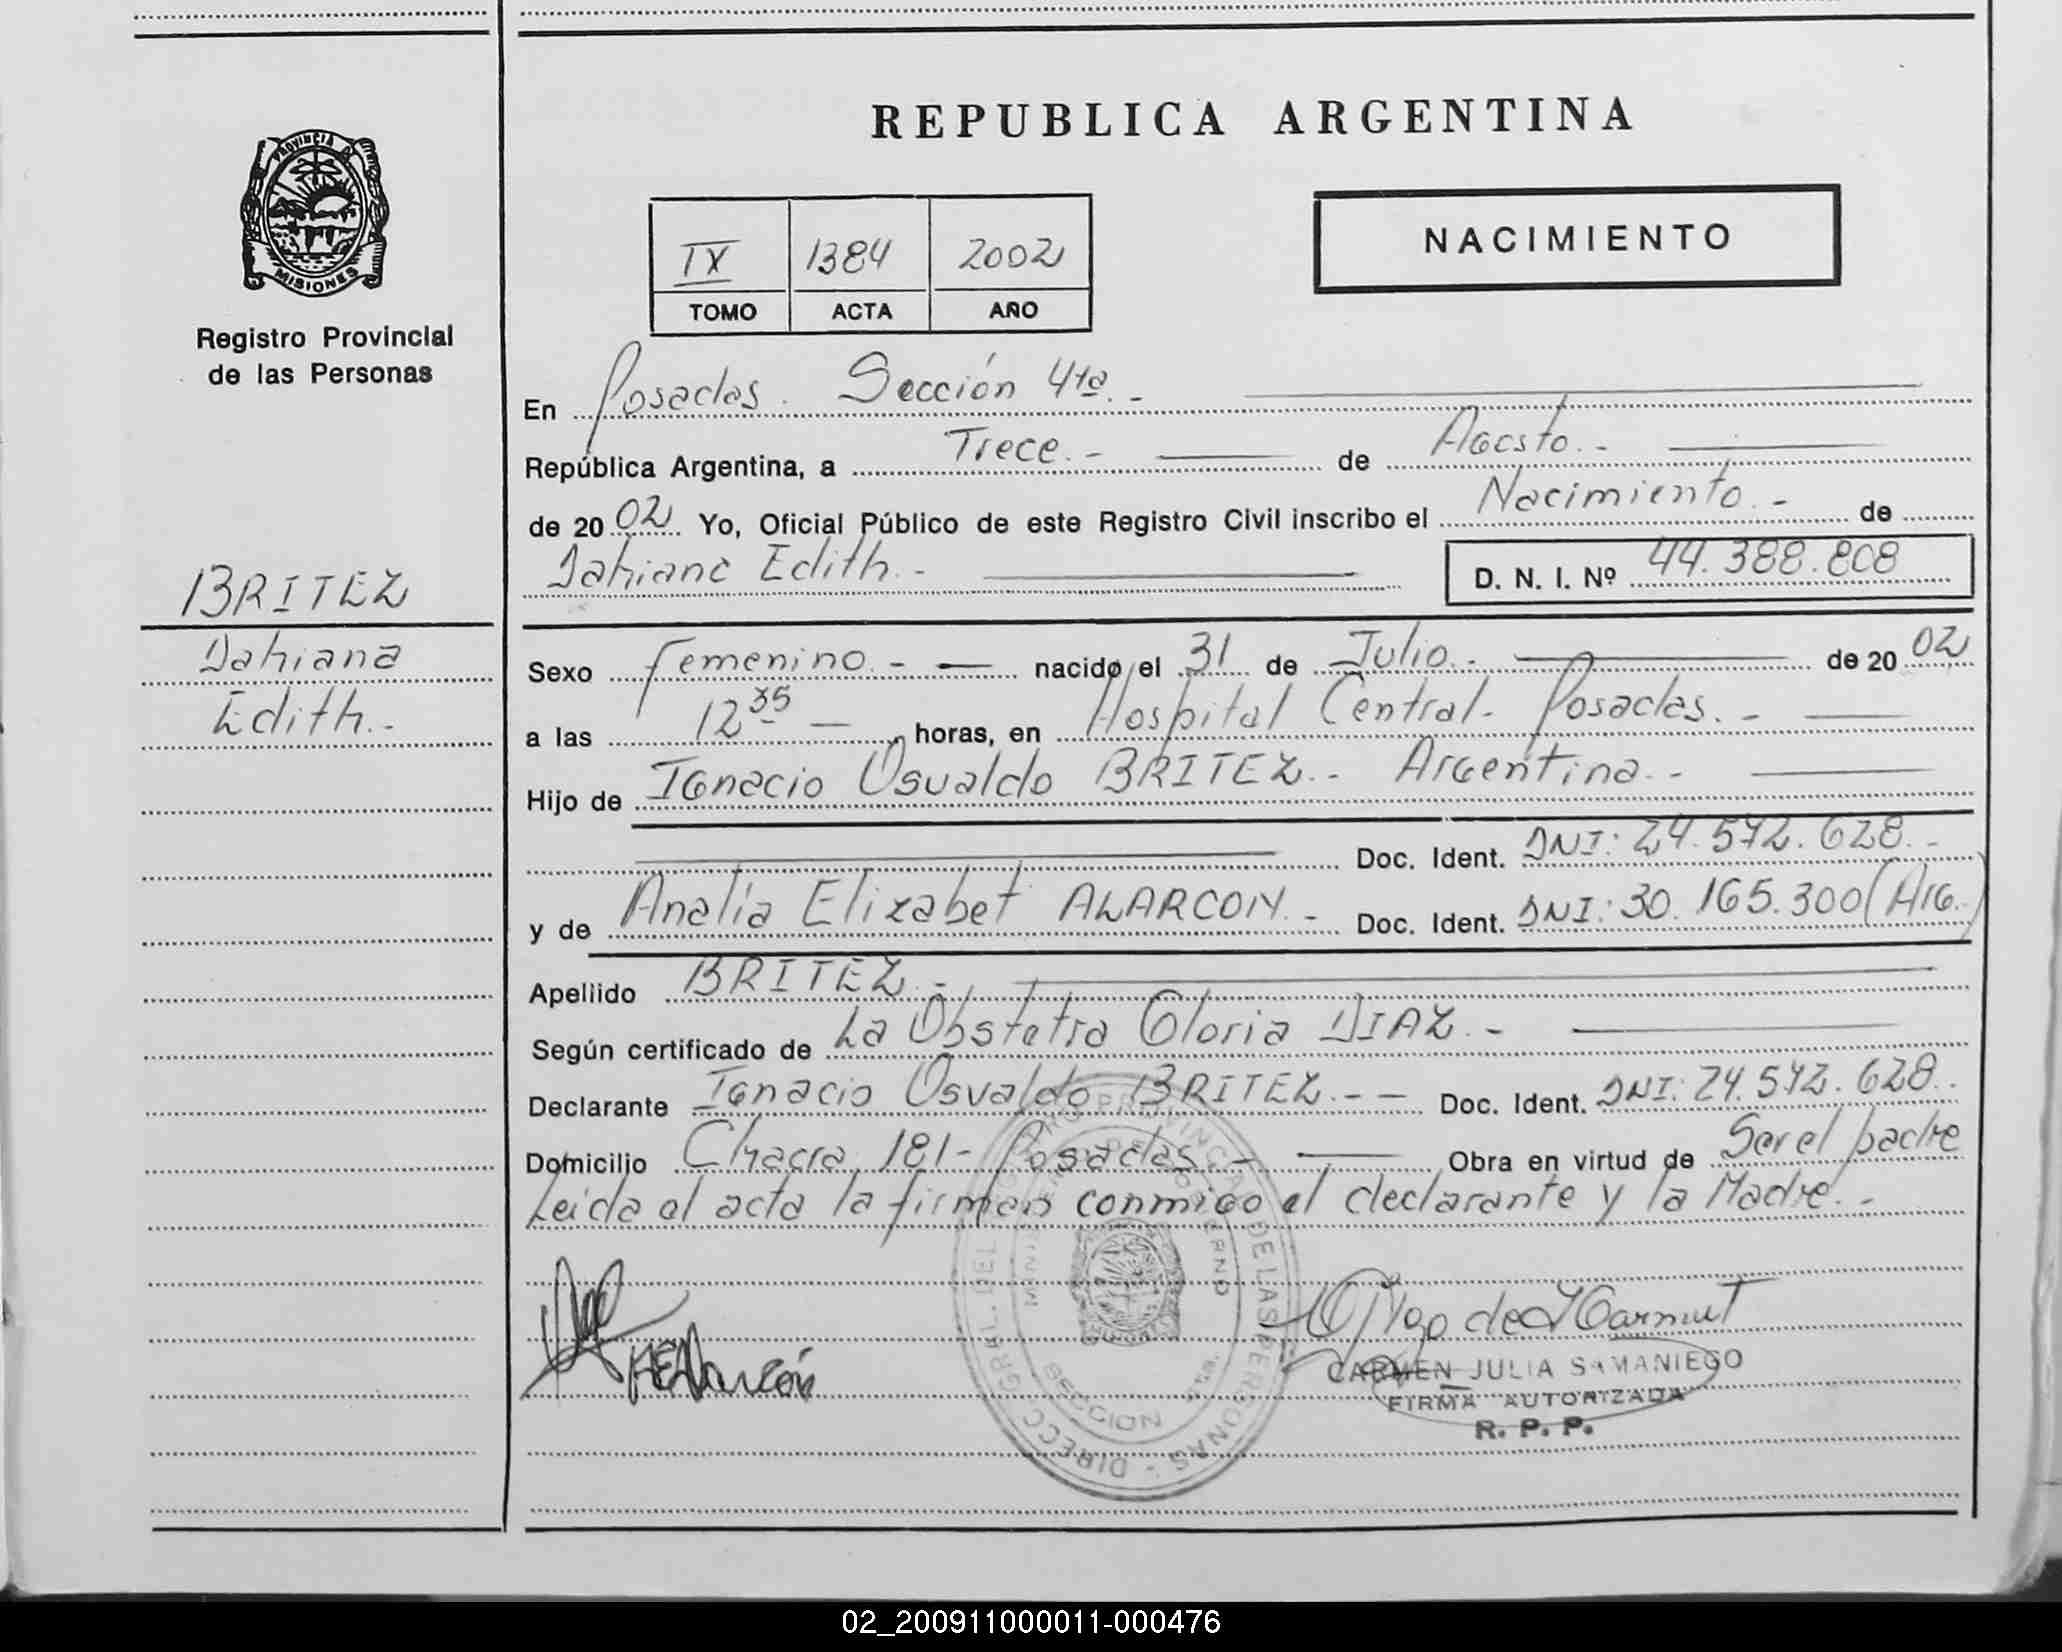 PROVINCIA DE
MISIONES
Registro Provincial
de las Personas
BRITEZ
Dahiana
Edith.-
REPUBLICA ARGENTINA
IX 1384 2002
TOMO ACTA AÑO
NACIMIENTO
En Posadas. Sección 4ta.-
República Argentina, a Trece.- de Agosto.-
de 20 02 Yo, Oficial Público de este Registro Civil inscribo el Nacimiento.- de
Dahiana Edith.- D. N. I. Nº 44.388.808
Sexo femenino.- nacido el 31 de Julio.- de 20 02
a las 12 35 horas, en Hospital Central- Posadas.-
Hijo de Ignacio Osvaldo BRITEZ.- Argentina.-
Doc. Ident. DNI: 24.572.628.-
y de Analía Elizabet ALARCON.- Doc. Ident. DNI: 30.165.300 (Arg.)
Apellido BRITEZ.-
Según certificado de La Obstetra Gloria DIAZ.-
Declarante Ignacio Osvaldo BRITEZ.-- Doc. Ident. DNI: 24.572.628.
Domicilio Chacra 181- Posadas.- Obra en virtud de Ser el padre
Leida el acta la firman conmigo el declarante y la Madre.-
DIREC. GRAL. DEL REGISTRO PROVINCIAL DE LAS PERSONAS
MINISTERIO DE GOBIERNO
SECCION 4ta.
CARMEN JULIA SAMANIEGO
FIRMA AUTORIZADA
R. P. P.
02_200911000011-000476